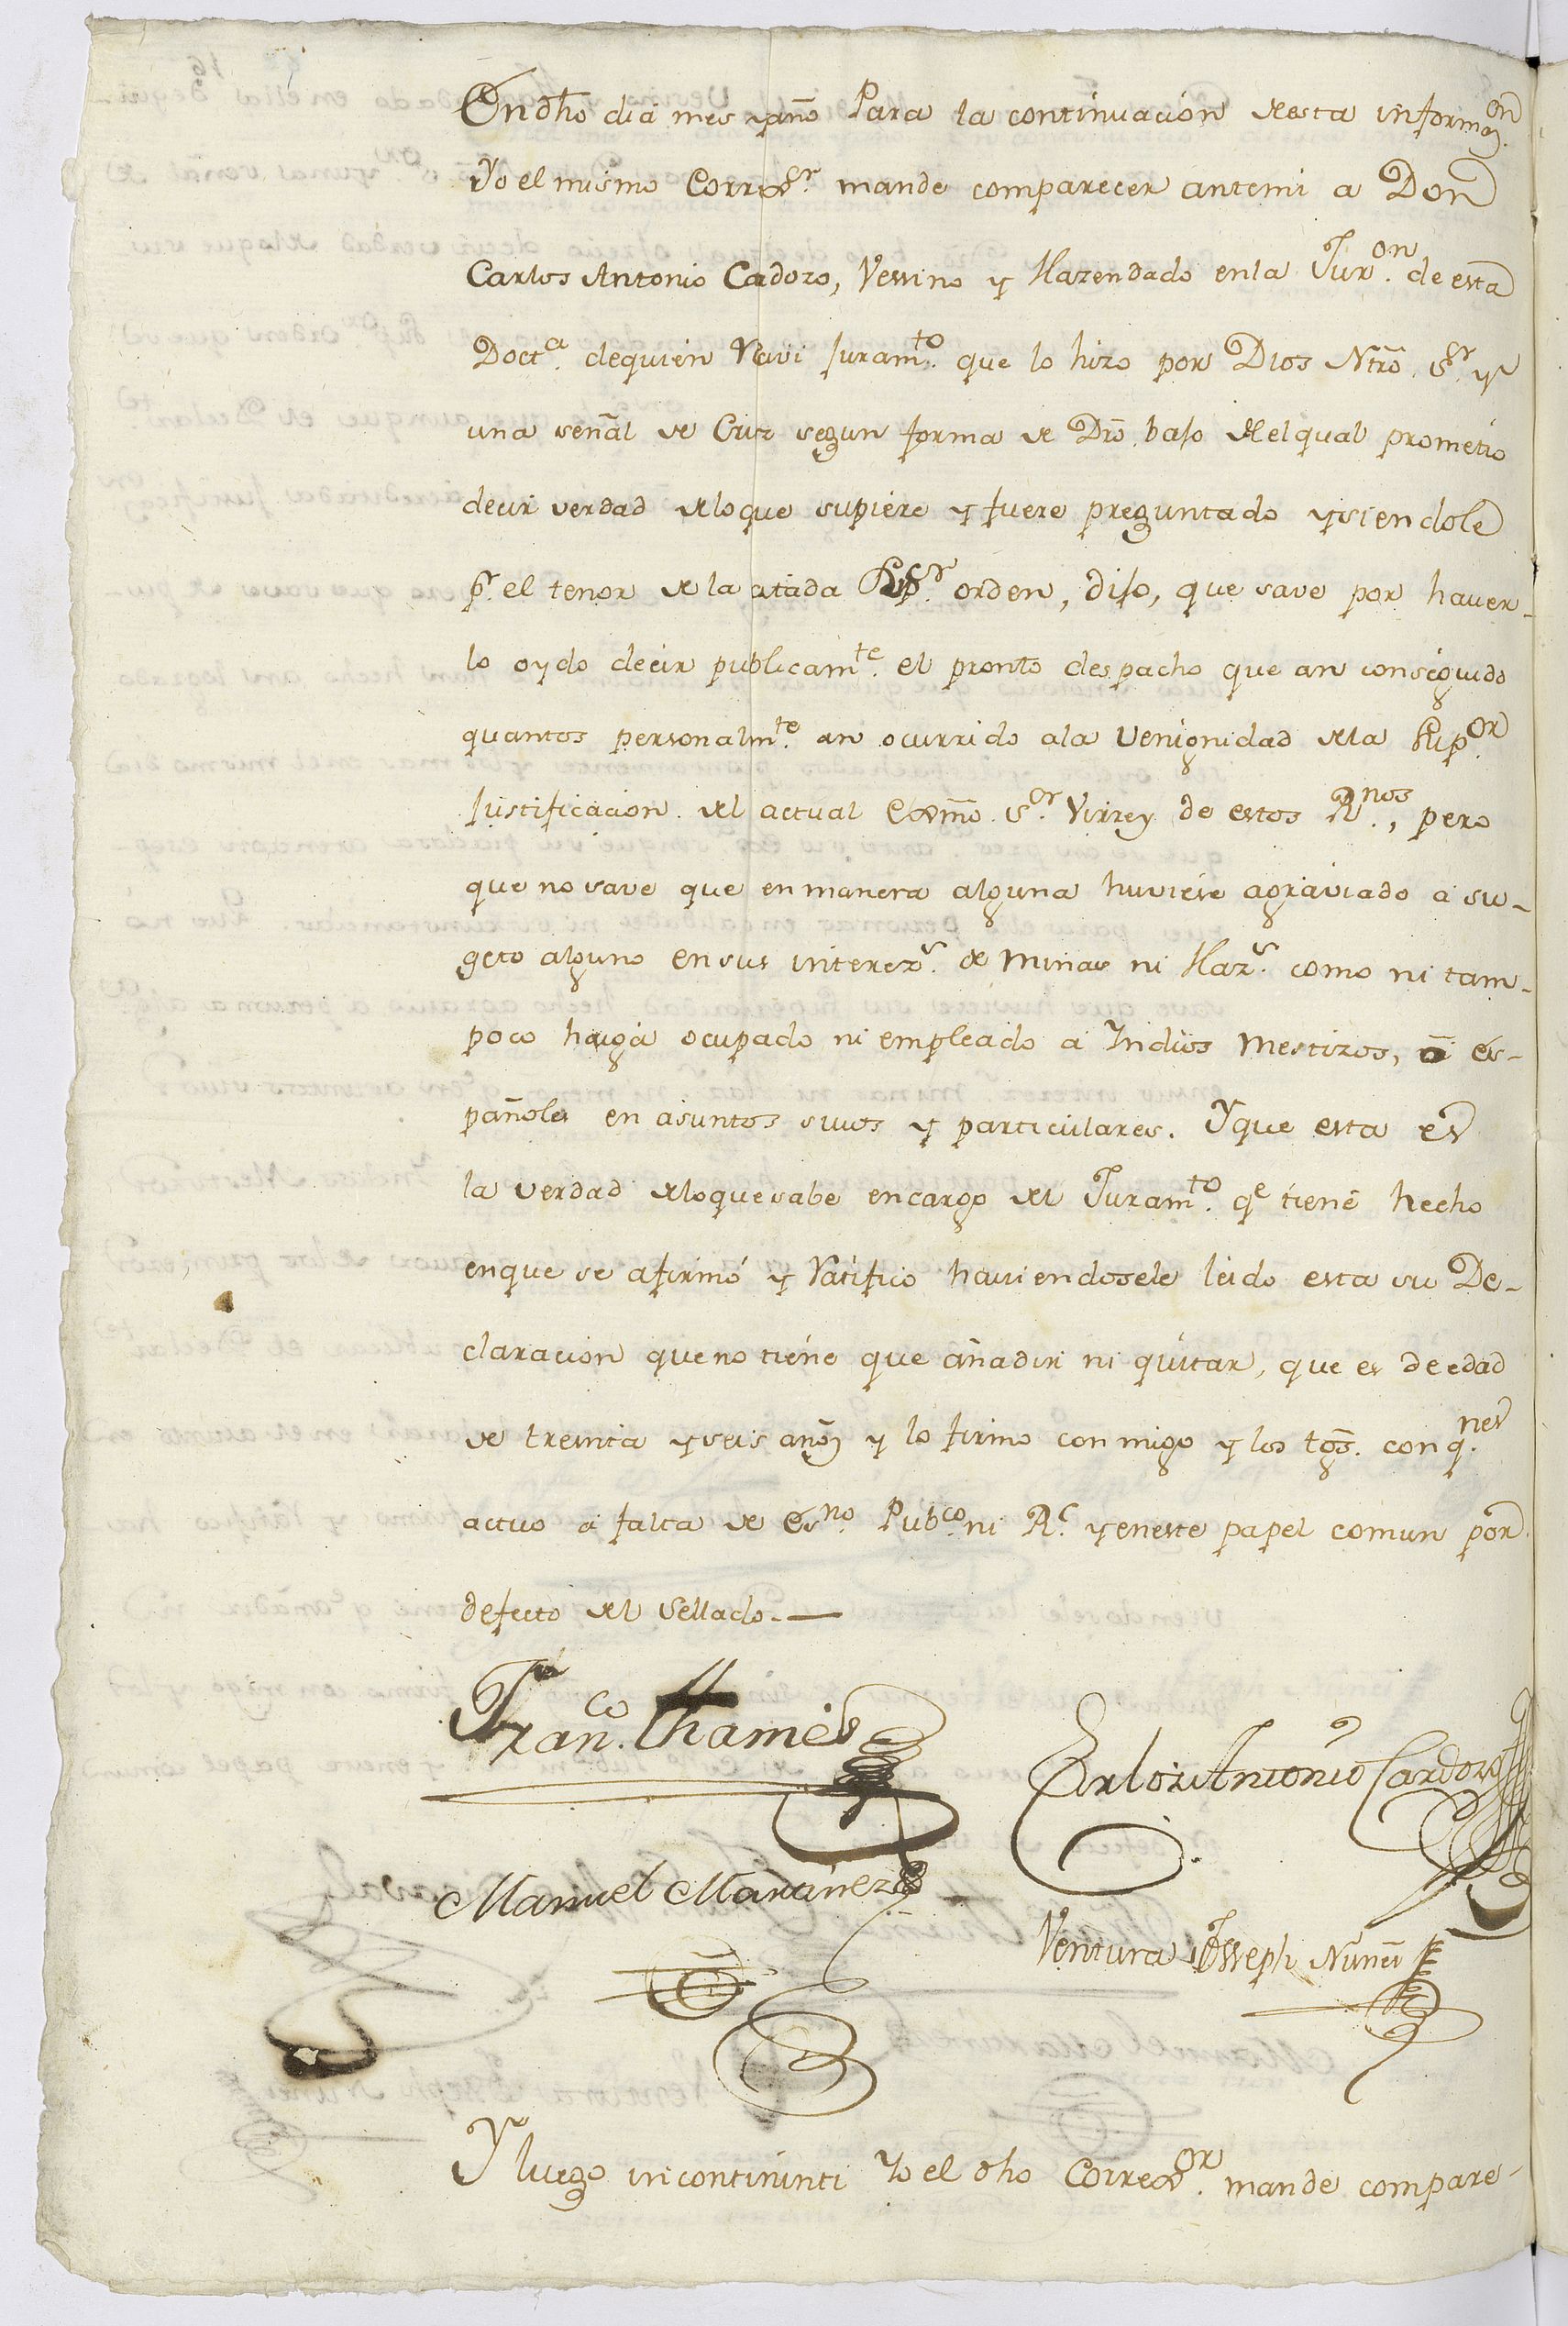 En dho dia mes y año Para la continuacion de esta informaon.
Yo el mismo Correxr. mande comparecer antemi a Don
Carlos Antonio Cadozo, Vessino y Hazendado enla Juron. de esta
Docta. dequien Resivi Juramto. que lo hizo por Dios Ntro. Sr. y
una señal de Cruz segun forma de Dro. bajo del qual prometio
decir verdad deloque supiere y fuere preguntado y siendole
pr. el tenor de la citada Supr. orden, dijo, que save por haver-
lo oydo decir publicamte. el pronto despacho que an conseguido
quantos personalmte. an ocurrido ala Venignidad dela Supor.
Justificacion del actual Exmo. Sor. Virrey de estos Rnos., pero
que no save que en manera alguna huviese agraviado a su-
geto alguno ensus interezs. de Minas ni Hazs. como ni tam-
poco haiga ocupado ni empleado a Indios Mestizos, o es-
pañoles en asuntos suios y particulares. Yque esta es
la verdad deloquesabe encargo del Juramto. qe tiene hecho
enque se afirmó y Ratifico haviendosele leido esta su De-
claracion queno tiene que añadir ni quitar, que es de edad
de treinta y seis años y lo firmo con migo y los tgos. con qnes.
actuo a falta de Esno. Pubco. ni Rl. y eneste papel comun por
defecto del Sellado.—
Franco. Thames
Carlos Antonio Cardozo
Manuel Martinez
Ventura Joseph Nuñes
Y luego incontininti Yo el dho Correxor. mande compare-